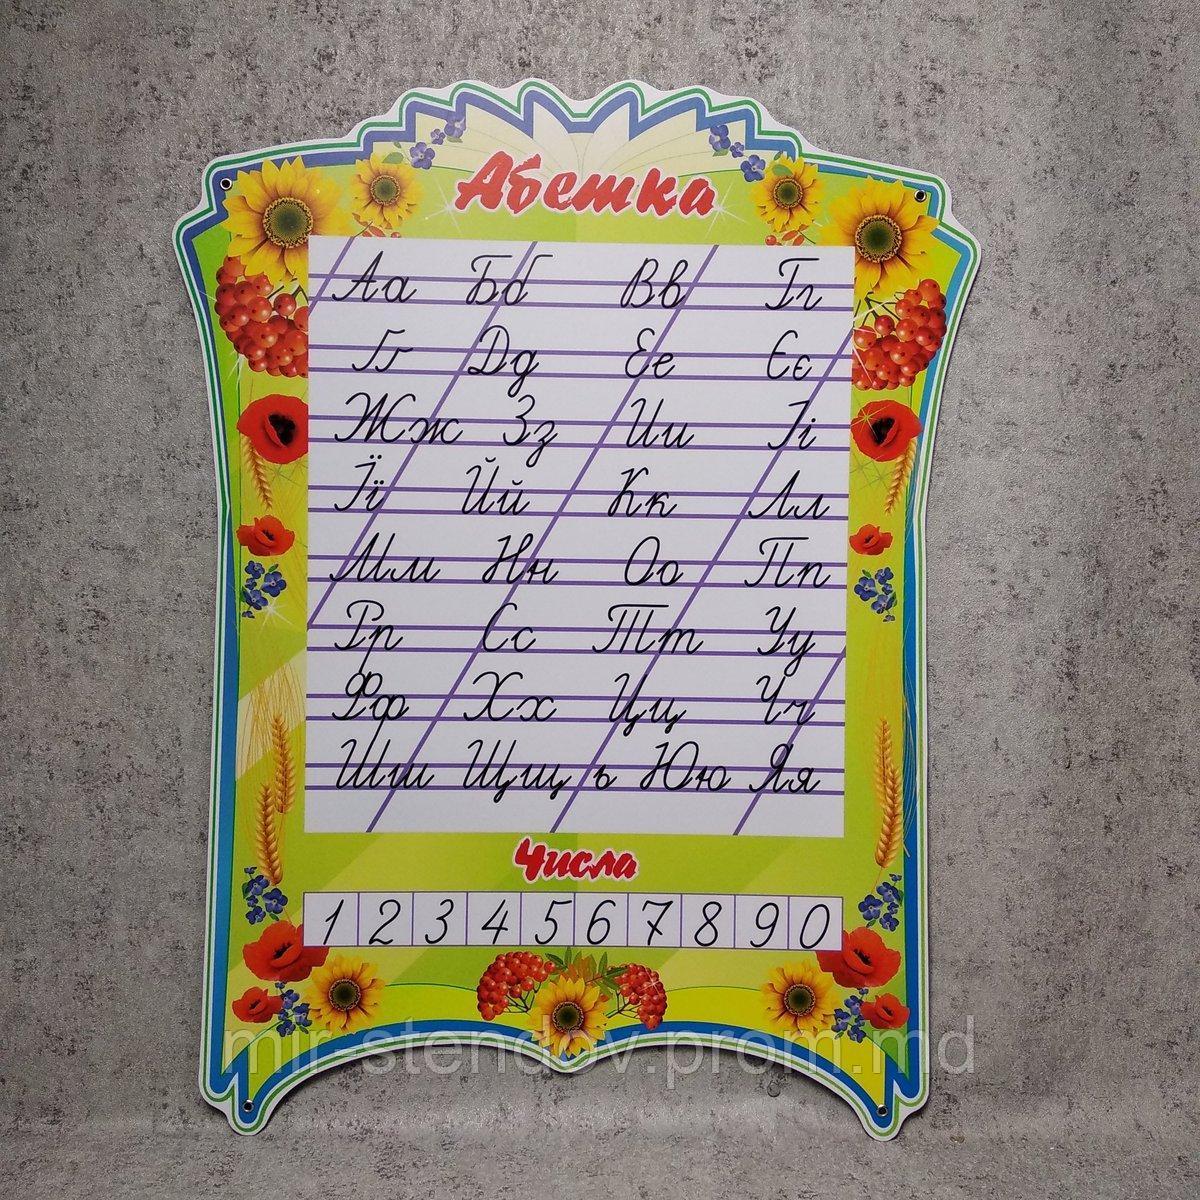 Абетка
Аа Бб Вв Гг
Ґґ Дд Ее Єє
Жж Зз Ии Іі
Її Йй Кк Лл
Мм Нн Оо Пп
Рр Сс Тт Уу
Фф Хх Цц Чч
Шш Щщ ь Юю Яя
Числа
1 2 3 4 5 6 7 8 9 0
mir-stendov.prom.md